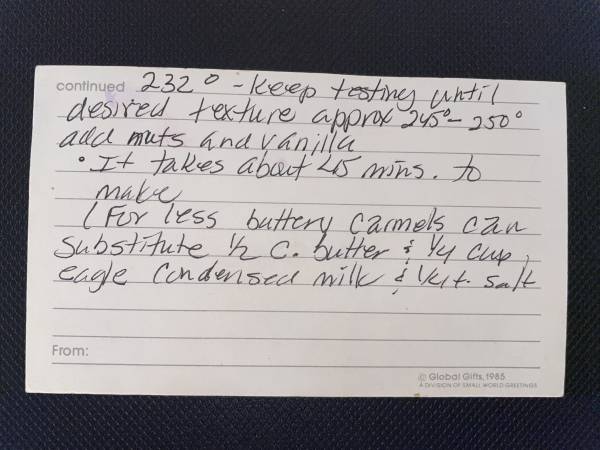 continued 232° - Keep testing until
desired texture approx 245°- 250°
add nuts and vanilla
• It takes about 45 mins. to
make
(For less buttery Carmels can
Substitute 1/2 c. butter & 1/4 cup
eagle Condensed milk & 1/4 t. salt
From:
© Global Gifts, 1985
A DIVISION OF SMALL WORLD GREETINGS